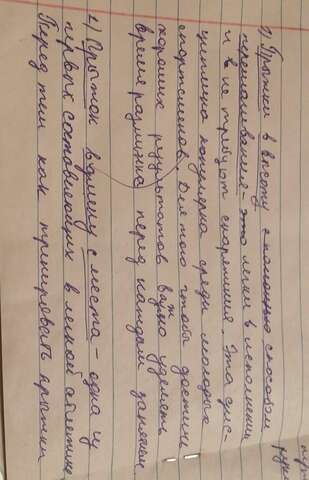 1) Прыжки в высоту с помощью способом
перешагивания - это легки в исполнении
и в не требует снаряжения. Эта дис-
циплина популярна среди молодых
спортсменов. Для того чтобы достичь
хороших результатов важно уделять
время разминке перед каждым занятием.
2.) Прыжок в длину с места - одна из
первых составляющих в легкой атлетике
Перед тем как тренировать прыжки